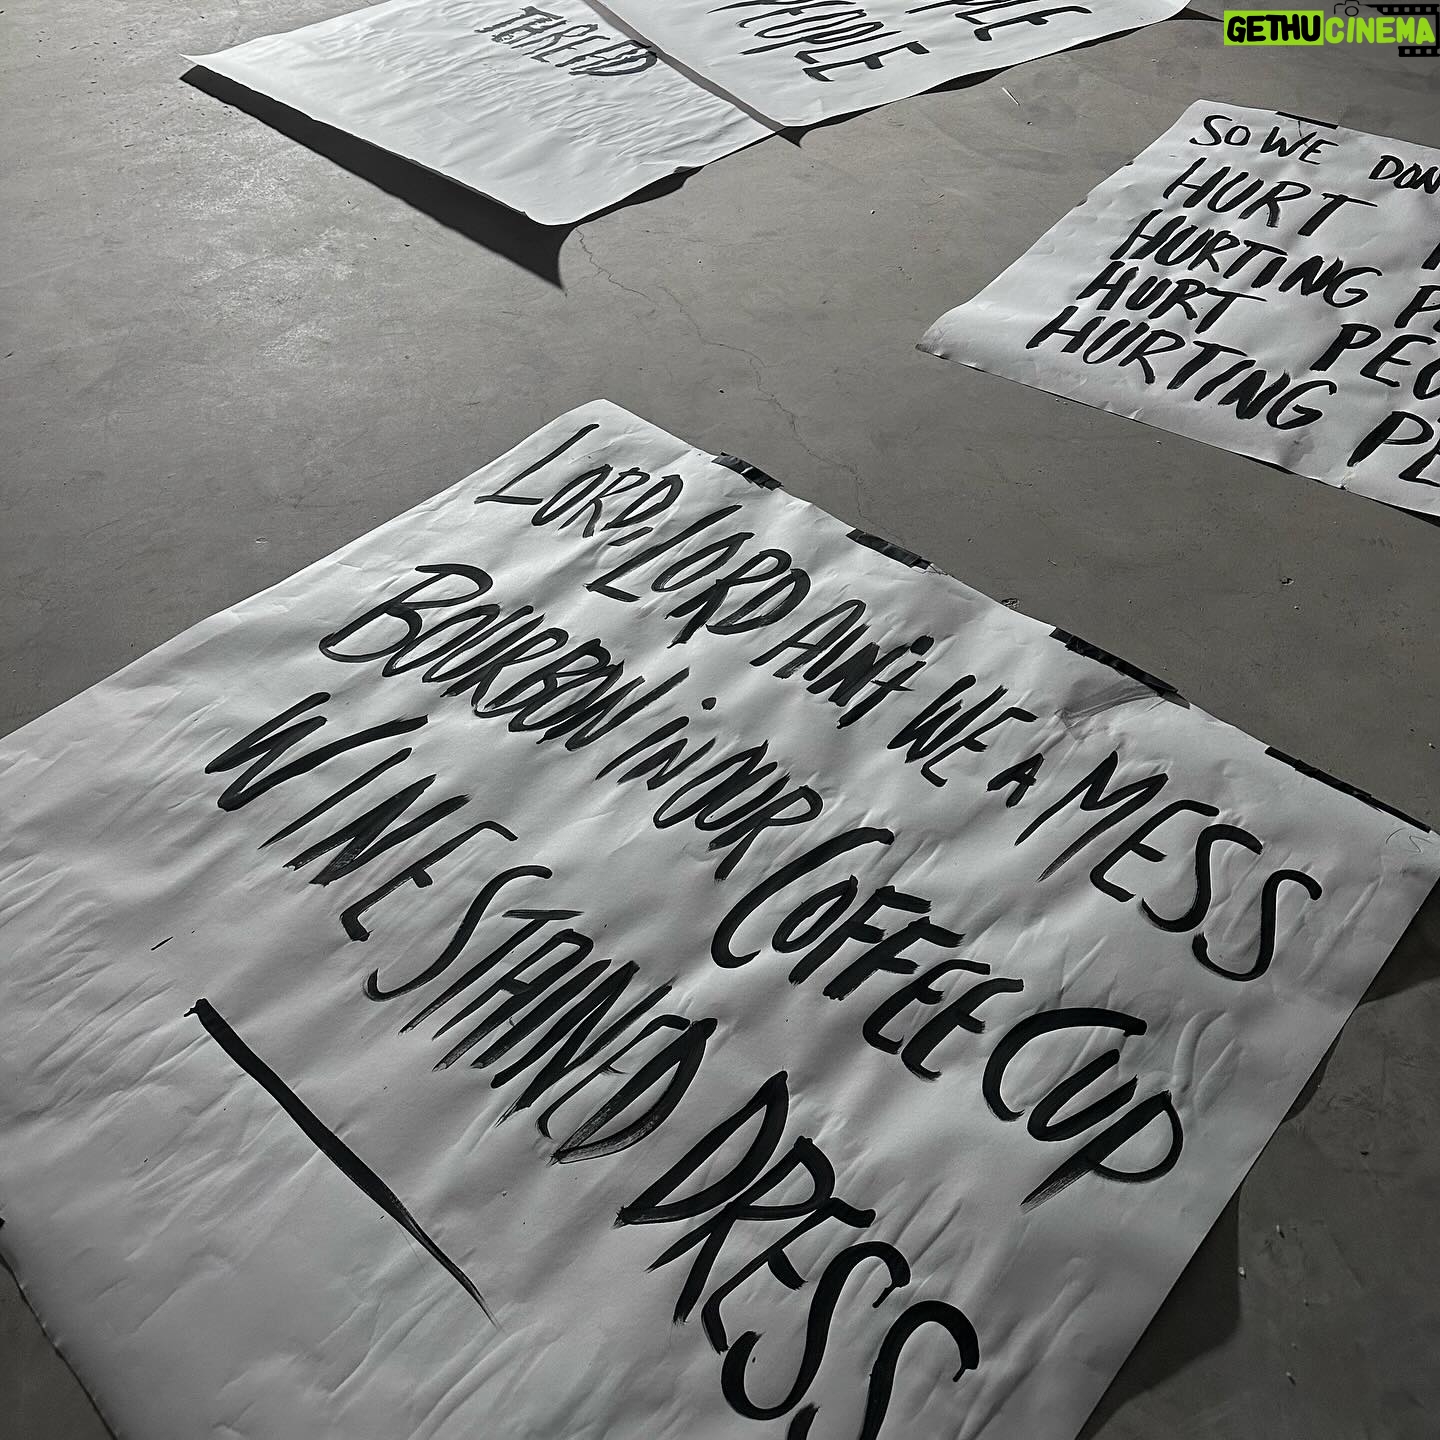 GETHUCINEMA
THREAD
PEOPLE
SO WE
HURT
HURTING
HURT
HURTING
LORD, LORD AIN't WE A MESS
BOURBON iN OUR COFFEE CUP
WINE STAINED DRESS